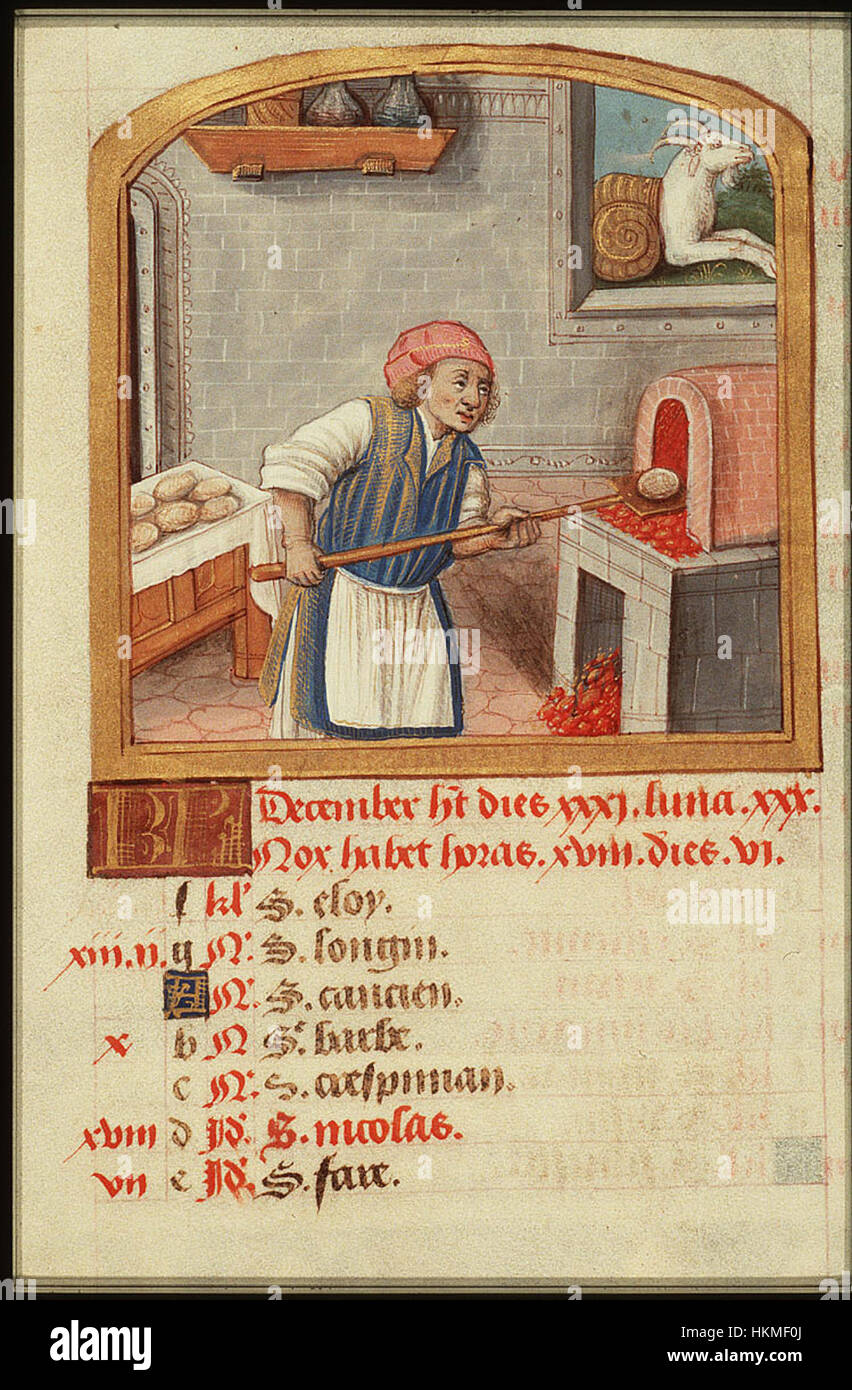 KL December ht dies xxxj. luna. xxx.
Nox habet horas. xviii. dies. vi.
f kl' S. eloy.
xiii. ii. g N'. S. longin.
A N'. S. cancien.
x b N Se. barbe.
c N'. S. crespinian.
xviii d Id'. S. nicolas.
vii e Id'. S. fare.
alamy
Image ID: HKMF0J
www.alamy.com